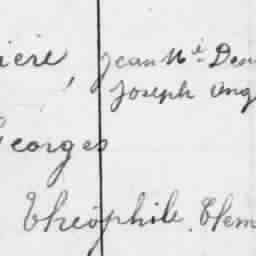 ière, Jean Nl Den
Joseph Ang
Georges
Théophile, Clem